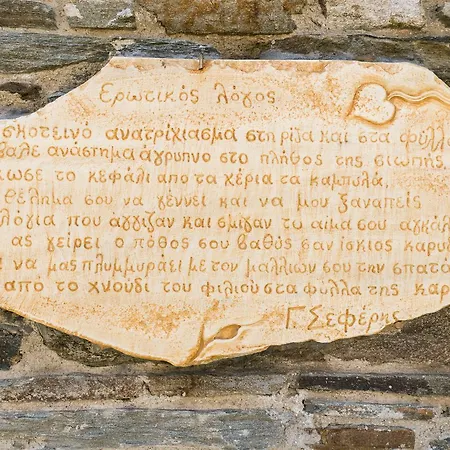 Ερωτικός λόγος
σκοτεινό ανατρίχιασμα στη ρίζα και στα φύλλ
βαλε ανάστημα άγρυπνο στο πλήθος της σιωπής
κωσε το κεφάλι από τα χέρια τα καμπύλα
θέλημα σου να γέννει και να μου ξαναπείς
λόγια που άγγιζαν και σμιγαν το αίμα σου αγκάλ
ας γείρει ο πόθος σου βαθύς σαν ίσκιος καρυδ
ι να μας πλυμμυράει με τον μαλλιών σου την σπατά
από το χνούδι του φιλιού στα φύλλα της καρ
Γ. Σεφέρης